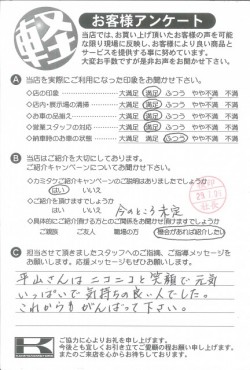 軽
お客様アンケート
当店では、お買い上げ頂いたお客様の声を可能
な限り現場に反映し、お客様により良い商品と
サービスを提供する事に努めています。
大変お手数ですが是非お声をお聞かせ下さい。
A 当店を実際にご利用になった印象をお聞かせ下さい。
◇店の印象 大満足 満足 ふつう やや不満 不満
◇店内・展示場の清掃 大満足 満足 ふつう やや不満 不満
◇お車の品揃え 大満足 満足 ふつう やや不満 不満
◇営業スタッフの対応 大満足 満足 ふつう やや不満 不満
◇納車時のお車の状態 大満足 満足 ふつう やや不満 不満
B 当店はご紹介を大切にしております。
ご紹介キャンペーンについてお聞かせ下さい。
◇カミタケご紹介キャンペーンのご説明はありましたでしょうか
はい いいえ
◇ご紹介を頂けますでしょうか
はい いいえ 今のところ未定
◇具体的にご紹介頂ける方とのご関係をお聞かせ頂けますでしょうか
ご親族 ご友人 職場の方 機会があれば紹介したい
C 担当させて頂きましたスタッフへのご指摘、ご指導メッセージを
お願いします。応援メッセージもぜひお願いします。
平山さんはニコニコと笑顔で元気
いっぱいで気持ちの良い人でした。
これからもがんばって下さい。
K
ご協力に心よりお礼を申し上げます。
今後とも宜しくお引き立てご愛顧の程お願い申し上げます。
またのご来店を心からお待ちしております。